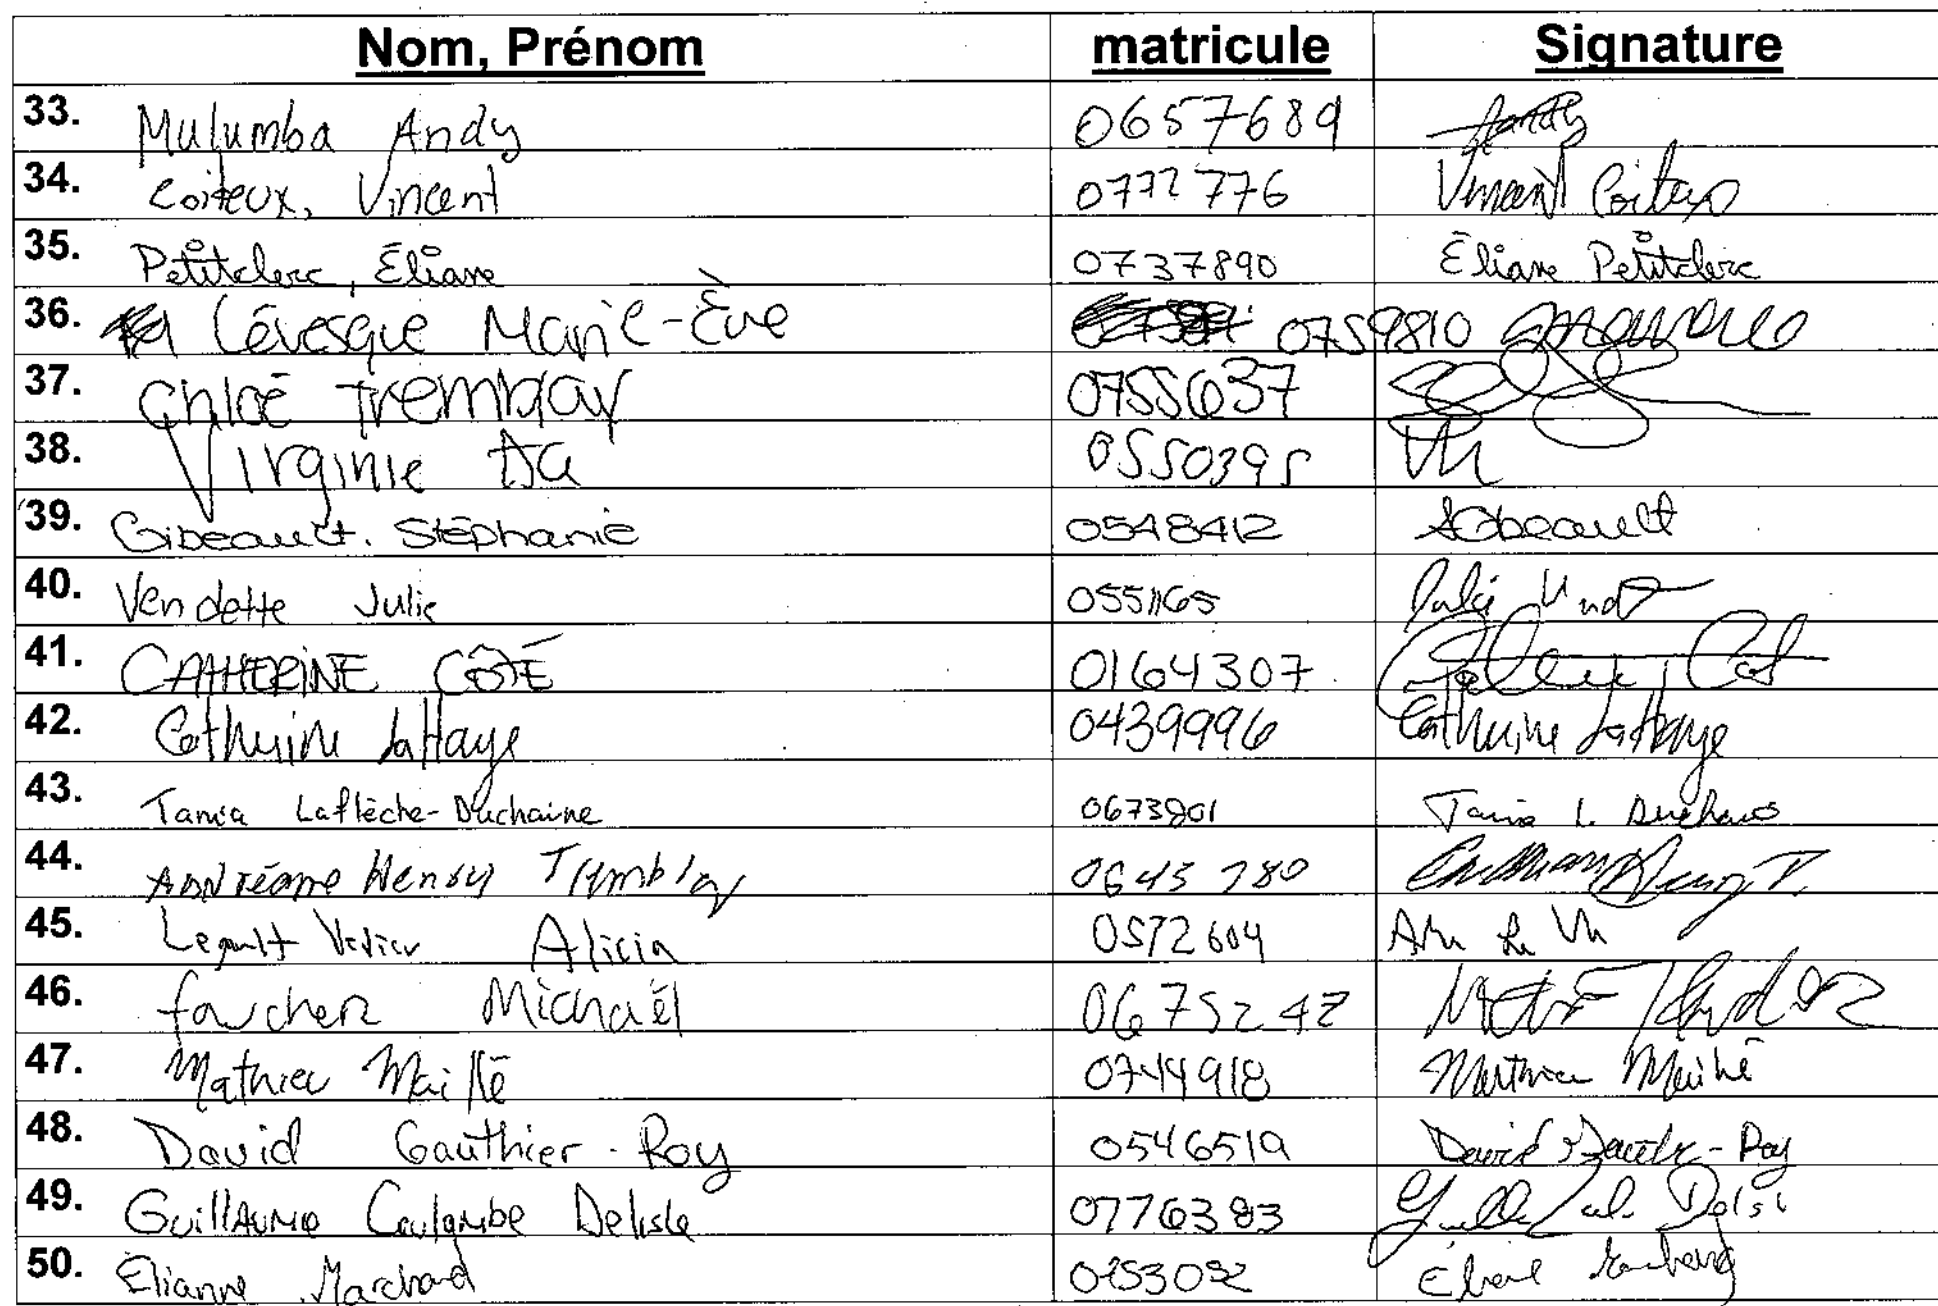 Nom, Prénom matricule Signature
33. Mulumba Andy 0657689 Andy
34. Coiteux, Vincent 0772776 Vincent Coiteux
35. Petitclerc, Éliane 0737890 Éliane Petitclerc
36. Lévesque Marie-Ève 0759810
37. Chloé Tremblay 0755637
38. Virginie 0550395
39. Gibeault. Stéphanie 0548412 SGibeault
40. Vendette Julie 0551165 Julie
41. CATHERINE CÔTÉ 0164307
42. Catherine LaHaye 0439996 Catherine LaHaye
43. Tania Laflèche-Duchaine 0673901 Tania L. Duchaine
44. Andréane Henry Tremblay 0645780
45. Legault Alicia 0572604
46. foucher Michaël 0675242
47. Mathieu Maillé 0744918 Mathieu Maillé
48. David Gauthier-Roy 0546519 David Gauthier-Roy
49. Guillaume Coulombe Delisle 0776383
50. Elianne Marchand